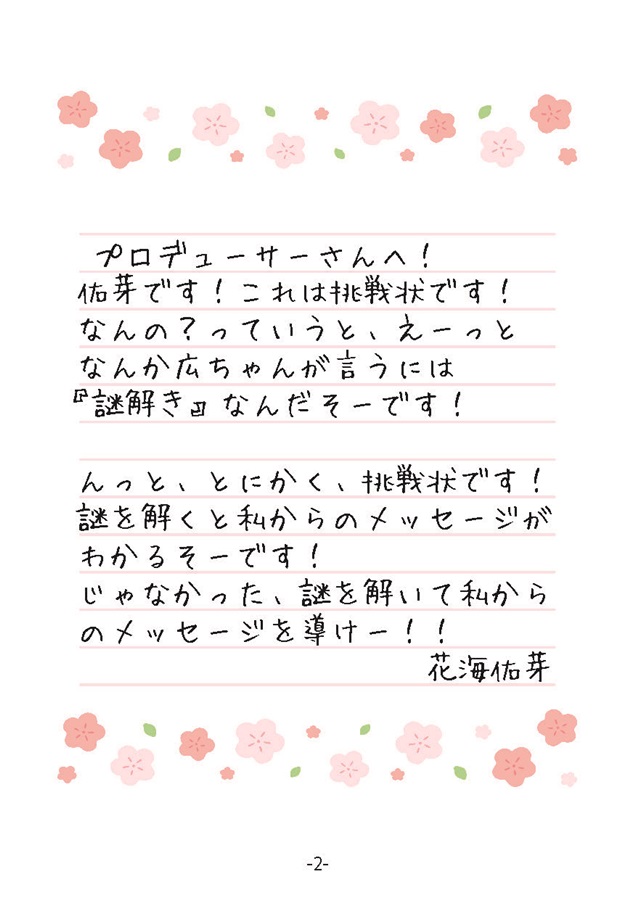 プロデューサーさんへ！
佑芽です！これは挑戦状です！
なんの？っていうと、えーっと
なんか広ちゃんが言うには
『謎解き』なんだそーです！
んっと、とにかく、挑戦状です！
謎を解くと私からのメッセージが
わかるそーです！
じゃなかった、謎を解いて私から
のメッセージを導けー！！
花海佑芽
-2-